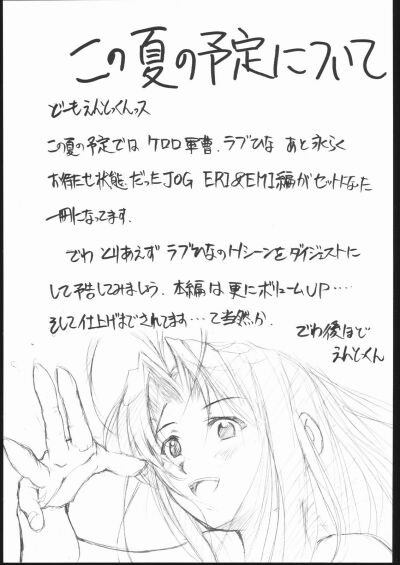 この夏の予定について
どーもえんとっくんっス
この夏の予定では ケロロ軍曹、ラブひな あと永らく
お待たせ状態だったJOG ERI&EMI編がセットになった
一冊になってます。
でわ とりあえず ラブひなのHシーンをダイジェストに
して予告してみましょう。本編は更にボリュームUP・・・・
そして仕上げまでされてます・・・て当然か。
でわ後ほど
えんとっくん